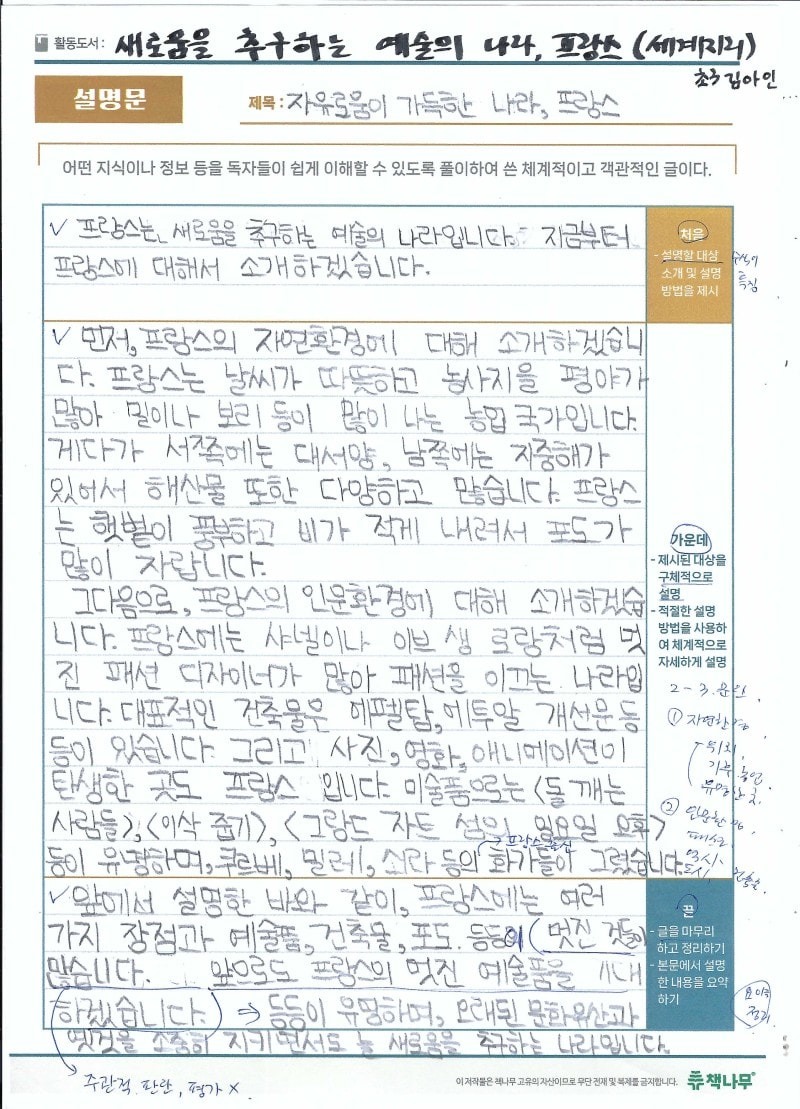 활동도서 : 새로움을 추구하는 예술의 나라, 프랑스 (세계지리)
초3 김아인
설명문
제목 : 자유로움이 가득한 나라, 프랑스
어떤 지식이나 정보 등을 독자들이 쉽게 이해할 수 있도록 풀이하여 쓴 체계적이고 객관적인 글이다.
✓ 프랑스는 새로움을 추구하는 예술의 나라입니다. 지금부터
프랑스에 대해서 소개하겠습니다.
처음
- 설명할 대상
소개 및 설명
방법을 제시
특징
✓ 먼저, 프랑스의 자연환경에 대해 소개하겠습니
다. 프랑스는 날씨가 따뜻하고 농사지을 평야가
많아 밀이나 보리 등이 많이 나는 농업 국가입니다.
게다가 서쪽에는 대서양, 남쪽에는 지중해가
있어서 해산물 또한 다양하고 많습니다. 프랑스
는 햇볕이 풍부하고 비가 적게 내려서 포도가
많이 자랍니다.
그다음으로, 프랑스의 인문환경에 대해 소개하겠습
니다. 프랑스에는 샤넬이나 이브 생 로랑처럼 멋
진 패션 디자이너가 많아 패션을 이끄는 나라입
니다. 대표적인 건축물은 에펠탑, 에투알 개선문 등
등이 있습니다. 그리고 사진, 영화, 애니메이션이
탄생한 곳도 프랑스 입니다. 미술품으로는 <돌 깨는
사람들>, <이삭 줍기>, <그랑드 자트 섬의 일요일 오후>
등이 유명하며, 쿠르베, 밀레, 쇠라 등의 화가들이 그렸습니다.
프랑스 출신
가운데
- 제시된 대상을
구체적으로
설명
- 적절한 설명
방법을 사용하
여 체계적으로
자세하게 설명
2-3 문단
① 자연환경
위치,
기후, 농업
유명한 곳.
② 인문환경
패션,
역시
도시, 건축물.
✓ 앞에서 설명한 바와 같이, 프랑스에는 여러
가지 장점과 예술품, 건축물, 포도 등등의 (멋진 것들이
많습니다. 앞으로도 프랑스의 멋진 예술품을 기대
하겠습니다. ⇒ 등등이 유명하며, 오래된 문화유산과
옛것을 소중히 지키면서도 늘 새로움을 추구하는 나라입니다.
끝
- 글을 마무리
하고 정리하기
- 본문에서 설명
한 내용을 요약
하기
요약
정리
주관적 판단, 평가 X.
이 저작물은 책나무 고유의 자산이므로 무단 전재 및 복제를 금지합니다.
책나무